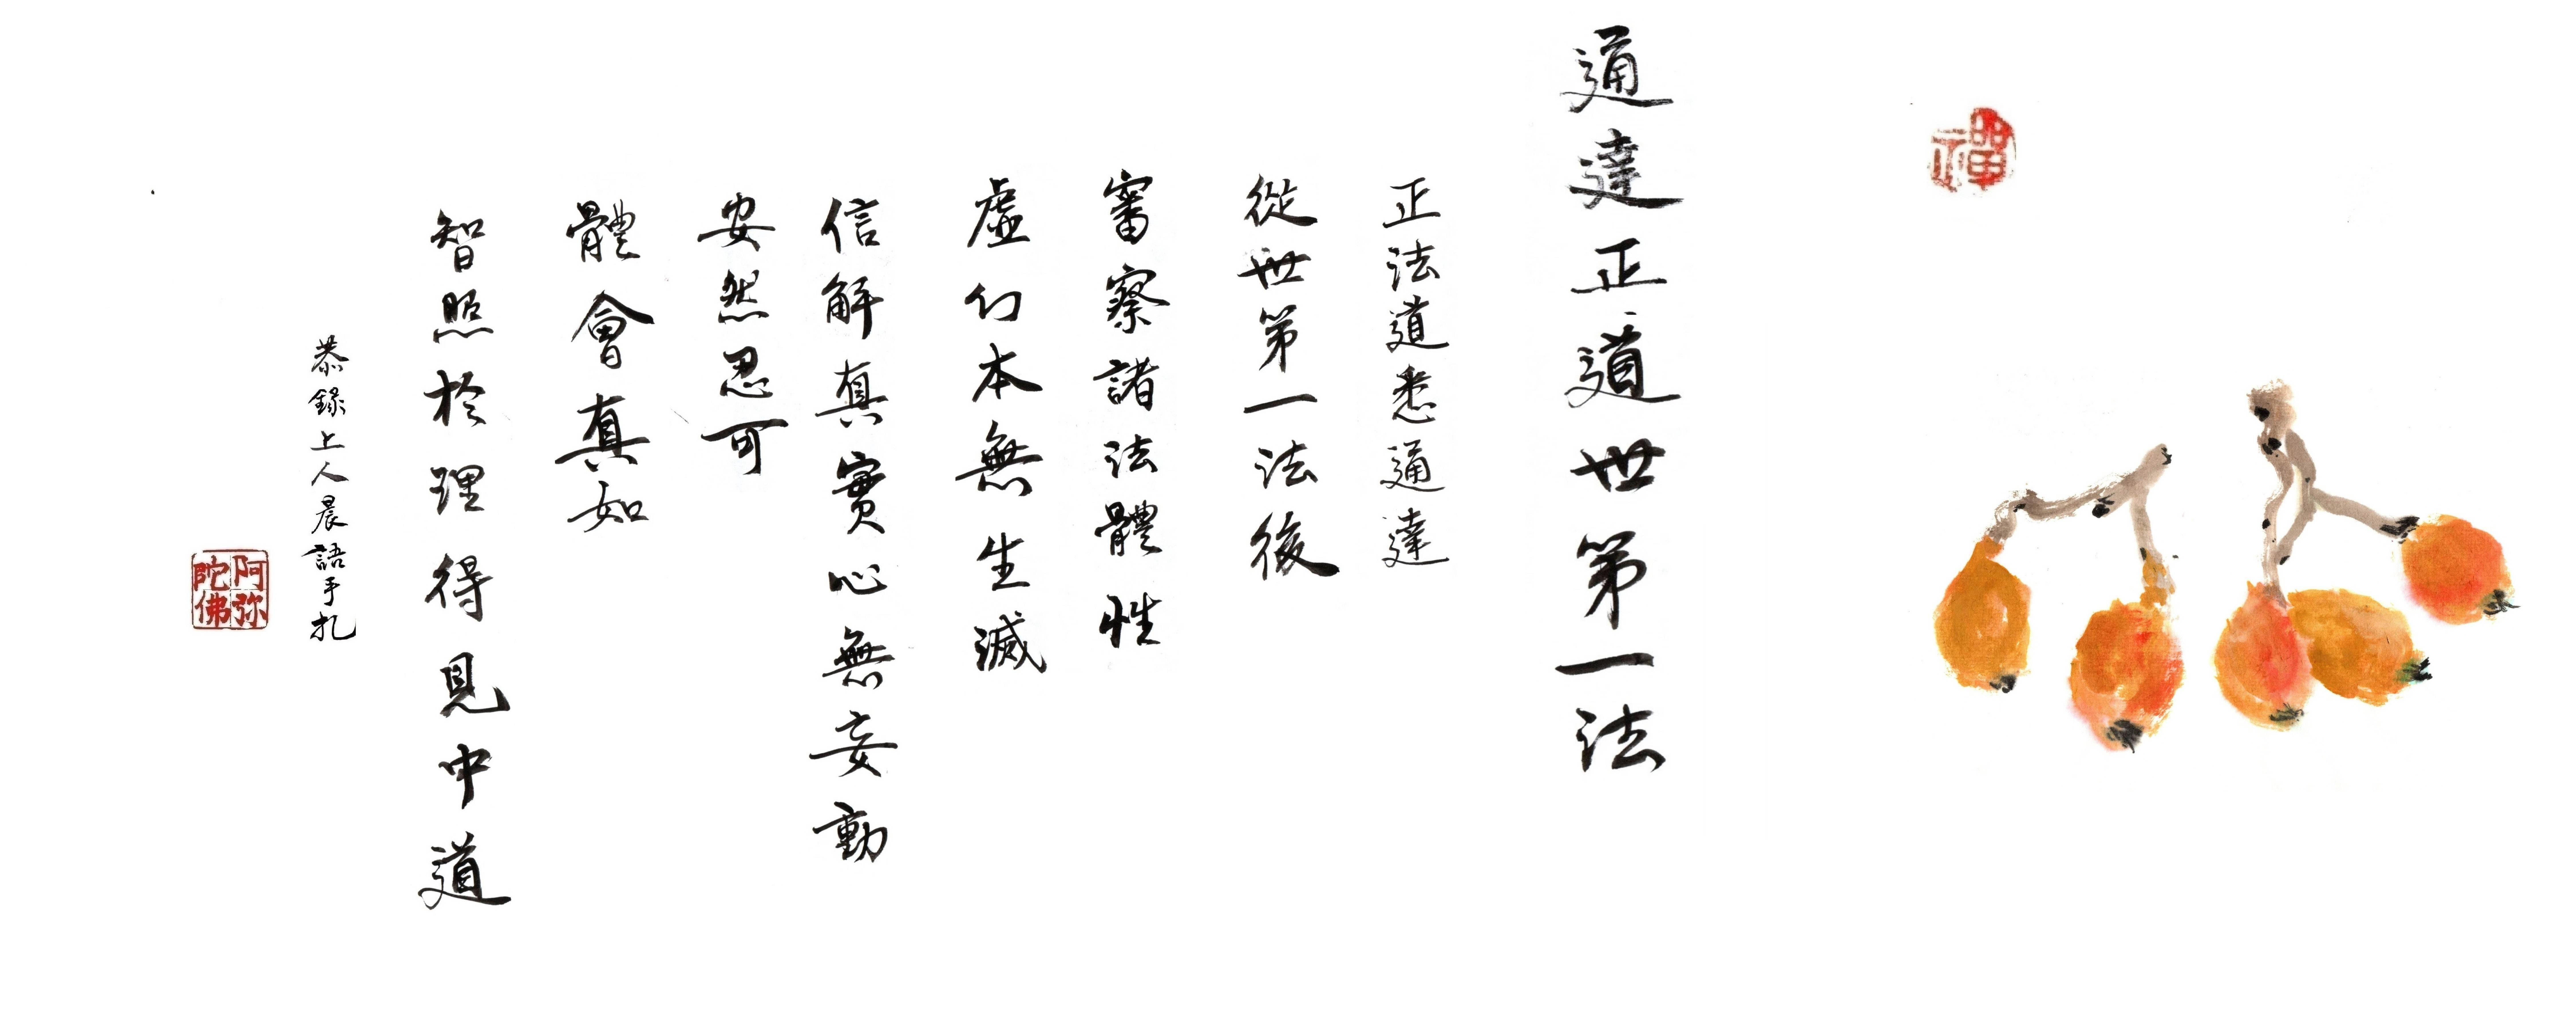 禪
通達正道世第一法
正法道悉通達
從世第一法後
審察諸法體性
虛幻本無生滅
信解真實心無妄動
安然忍可
體會真如
智照於理得見中道
恭錄上人晨語手札
阿弥
陀佛